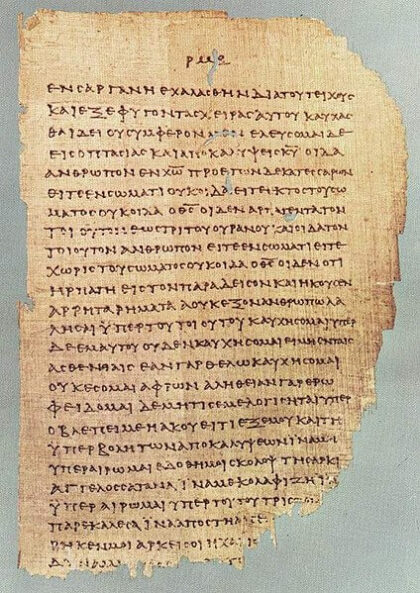 ΡΜϚ
ΕΝϹΑΡΓΑΝΗΕΧΑΛΑϹΘΗΝΔΙΑΤΟΥΤΕΙΧΟΥϹ
ΚΑΙΕΞΕΦΥΓΟΝΤΑϹΧΕΙΡΑϹΑΥΤΟΥΚΑΥΧΑϹ
ΘΑΙΔΕΙΟΥϹΥΜΦΕΡΟΝΜΕΝΕΛΕΥϹΟΜΑΙΔΕ
ΕΙϹΟΠΤΑϹΙΑϹΚΑΙΑΠΟΚΑΛΥΨΕΙϹΚ̅Υ̅ΟΙΔΑ
ΑΝΘΡΩΠΟΝΕΝΧ̅Ω̅ΠΡΟΕΤΩΝΔΕΚΑΤΕϹϹΑΡΩΝ
ΕΙΤΕΕΝϹΩΜΑΤΙΟΥΚΟΙΔΑΕΙΤΕΕΚΤΟϹΤΟΥϹΩ
ΜΑΤΟϹΟΥΚΟΙΔΑΟΘ̅Ϲ̅ΟΙΔΕΝΑΡΠΑΓΕΝΤΑΤΟΝ
ΤΟΙΟΥΤΟΝΕΩϹΤΡΙΤΟΥΟΥΡΑΝΟΥΚΑΙΟΙΔΑΤΟΝ
ΤΟΙΟΥΤΟΝΑΝΘΡΩΠΟΝΕΙΤΕΕΝϹΩΜΑΤΙΕΙΤΕ
ΧΩΡΙϹΤΟΥϹΩΜΑΤΟϹΟΥΚΟΙΔΑΟΘ̅Ϲ̅ΟΙΔΕΝΟΤΙ
ΗΡΠΑΓΗΕΙϹΤΟΝΠΑΡΑΔΕΙϹΟΝΚΑΙΗΚΟΥϹΕΝ
ΑΡΡΗΤΑΡΗΜΑΤΑΑΟΥΚΕΞΟΝΑΝΘΡΩΠΩΛΑ
ΛΗϹΑΙΫΠΕΡΤΟΥΤΟΙΟΥΤΟΥΚΑΥΧΗϹΟΜΑΙΥΠΕΡ
ΔΕΕΜΑΥΤΟΥΟΥΔΕΝΚΑΥΧΗϹΟΜΑΙΕΙΜΗΕΝΤΑΙϹ
ΑϹΘΕΝΕΙΑΙϹΕΑΝΓΑΡΘΕΛΩΚΑΥΧΗϹΟΜΑΙ
ΟΥΚΕϹΟΜΑΙΑΦΡΩΝΑΛΗΘΕΙΑΝΓΑΡΕΡΩ
ΦΕΙΔΟΜΑΙΔΕΜΗΤΙϹΕΜΕΛΟΓΙϹΗΤΑΙΥΠΕΡ
ΟΒΛΕΠΕΙΜΕΗΑΚΟΥΕΙΤΙΕΞΕΜΟΥΚΑΙΤΗ
ΫΠΕΡΒΟΛΗΤΩΝΑΠΟΚΑΛΥΨΕΩΝΪΝΑΜΗ
ΥΠΕΡΑΙΡΩΜΑΙΕΔΟΘΗΜΟΙϹΚΟΛΟΨΤΗϹΑΡΚΙ
ΑΓΓΕΛΟϹϹΑΤΑΝΑΪΝΑΜΕΚΟΛΑΦΙΖΗΪΝΑ
ΫΠΕΡΑΙΡΩΜΑΙΥΠΕΡΤΟΥΤΟΥΤΡΙϹ
ΠΑΡΕΚΑΛΕϹΑΪΝΑΑΠΟϹΤΗ
ΡΗΚΕΝΜΟΙΑΡΚΕΙϹΟΙΗΧΑΡΙϹ